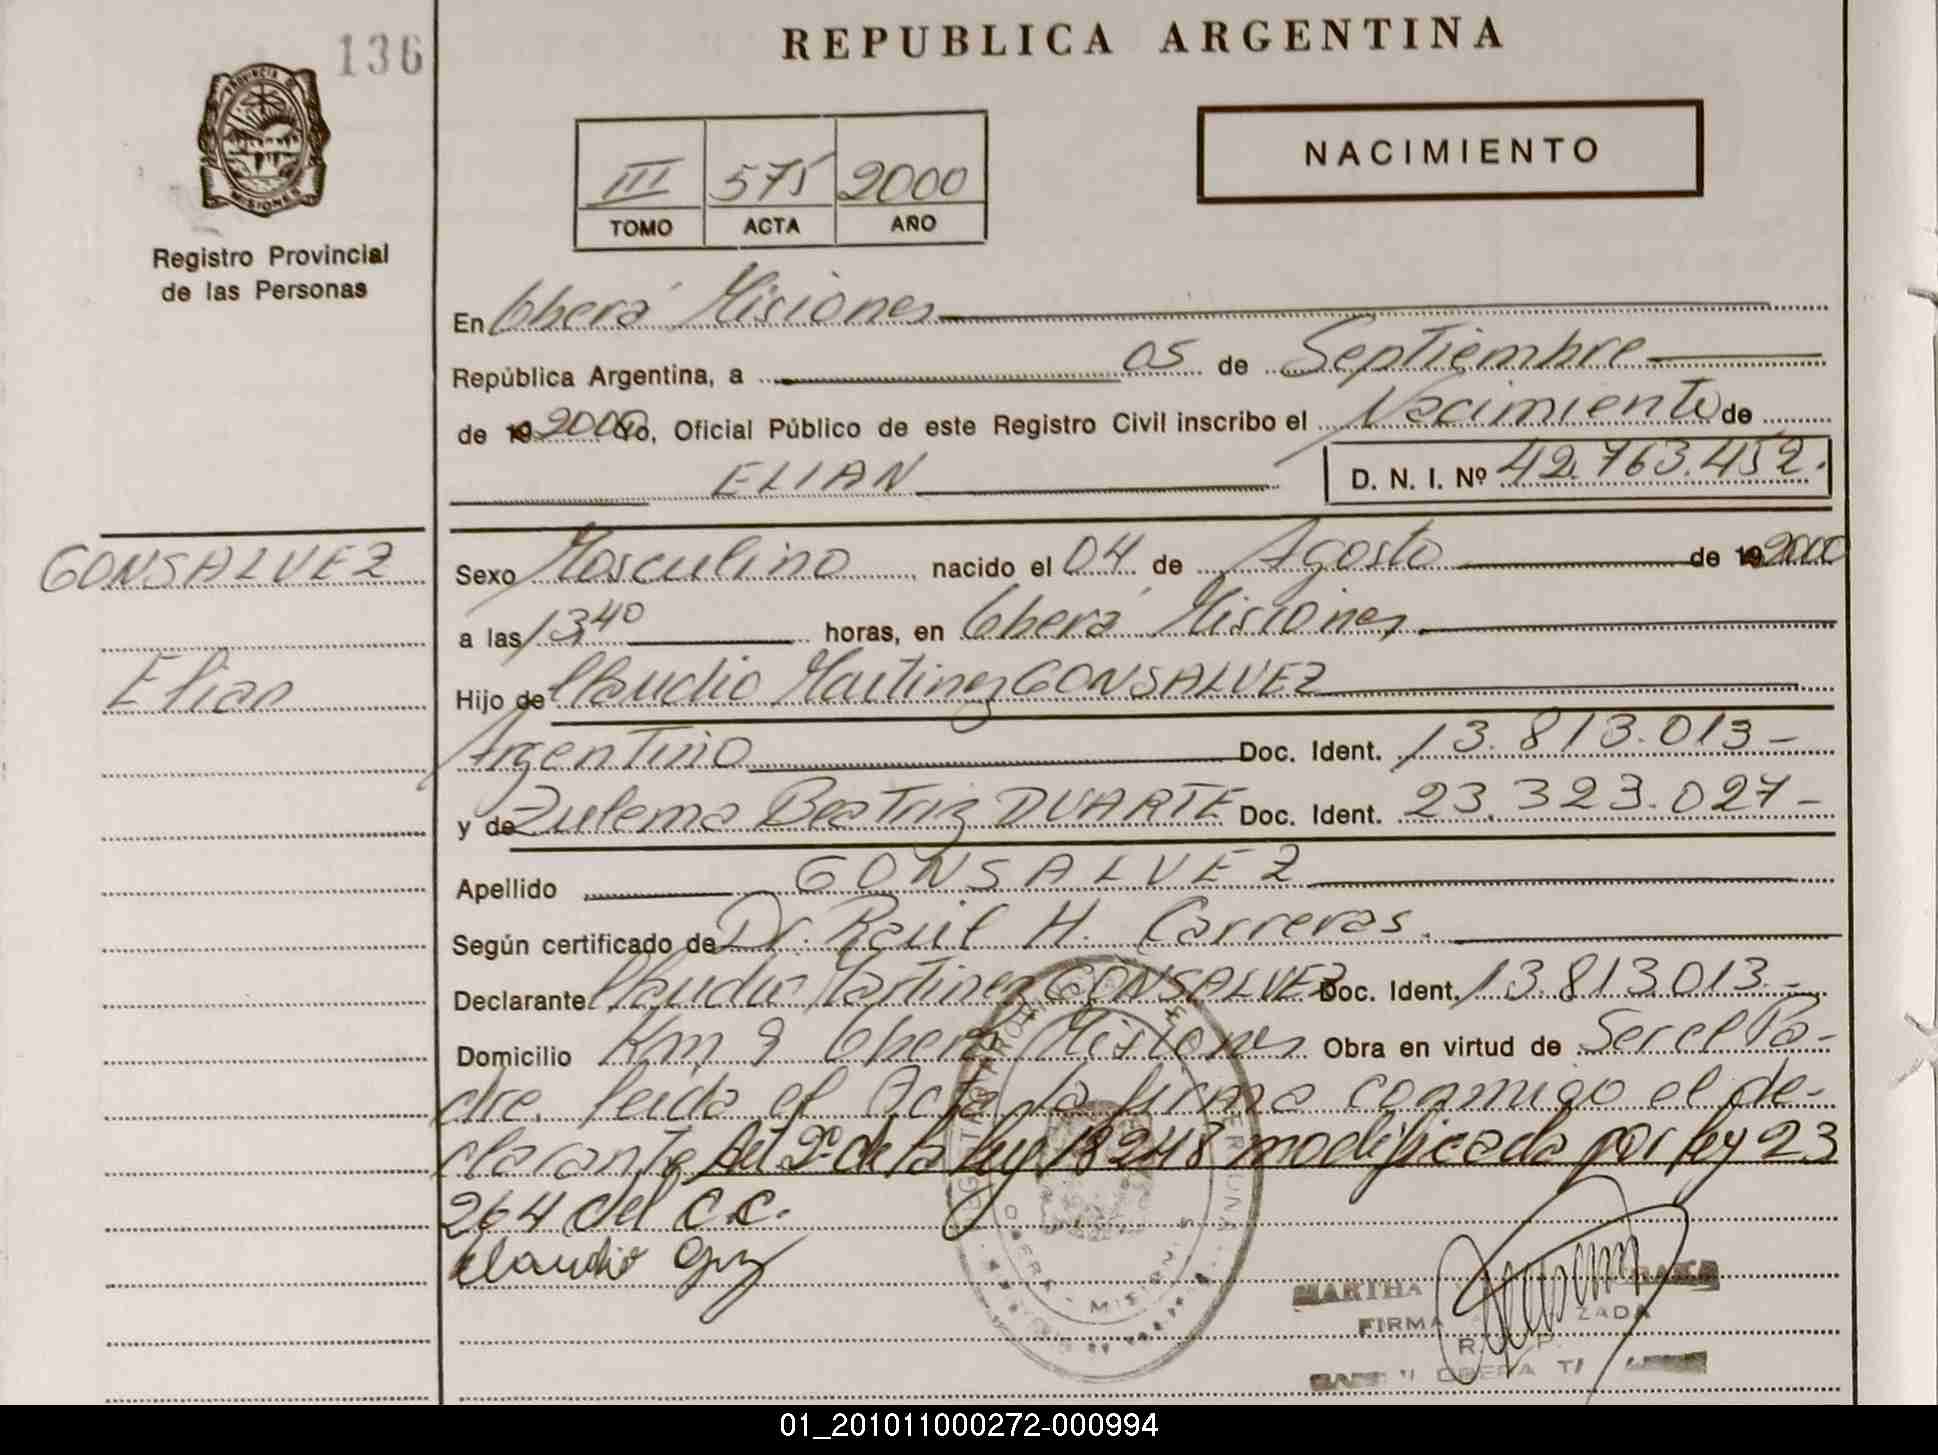 136
REPUBLICA ARGENTINA
PROVINCIA D
MISIONES
Registro Provincial
de las Personas
III 575 2000
TOMO ACTA AÑO
NACIMIENTO
En Oberá Misiones
República Argentina, a 05 de Septiembre
de 19 2000 Yo, Oficial Público de este Registro Civil inscribo el Nacimiento de
ELIAN D. N. I. Nº 42.763.452.
GONSALVEZ
Elian
Sexo Masculino nacido el 04 de Agosto de 19 2000
a las 13,40 horas, en Oberá Misiones
Hijo de Claudio Martinez GONSALVEZ
Argentino Doc. Ident. 13.813.013-
y de Zulema Beatriz DUARTE Doc. Ident. 23.323.027-
Apellido GONSALVEZ
Según certificado de Dr. Raúl H. Carreras.
Declarante Claudio Martinez GONSALVEZ Doc. Ident. 13.813.013.-
Domicilio Km 9 Oberá Misiones Obra en virtud de Ser el Pa-
dre. leida el Acta la firma conmigo el de-
clarante Art 2º de la ley 18248 modificada por ley 23
264 del C.C.
Claudio
OBERA - MISIONES
MARTHA
FIRMA ZADA
R. P.
OBERA
01_201011000272-000994